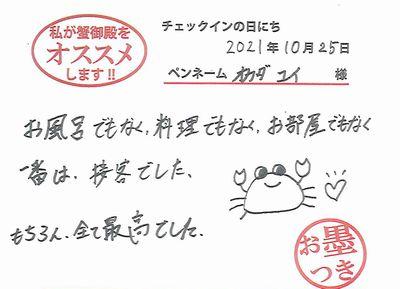 私が蟹御殿を
オススメ
します!!
チェックインの日にち
2021年10月25日
ペンネーム オカダ ユイ 様
お風呂でもなく、料理でもなく、お部屋でもなく
一番は、接客でした、
もちろん、全て最高でした。
お墨
つき